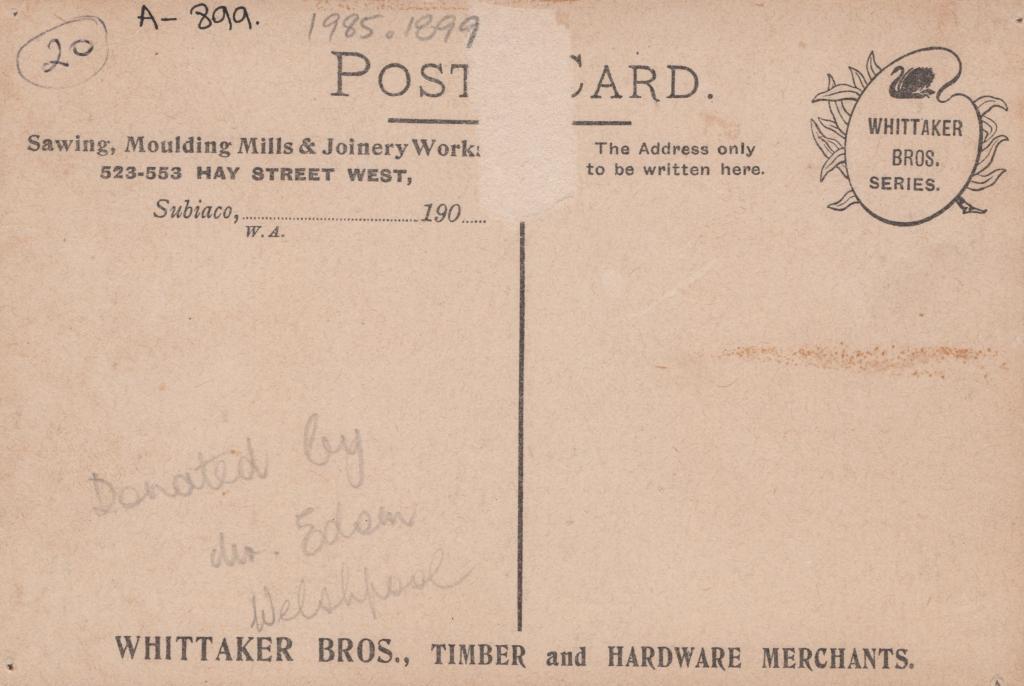 A-899.
1985.1899
20
POST CARD.
Sawing, Moulding Mills & Joinery Work
523-553 HAY STREET WEST,
Subiaco, 190
W.A.
The Address only
to be written here.
WHITTAKER
BROS.
SERIES.
Donated by
Edom
Welshpool
WHITTAKER BROS., TIMBER and HARDWARE MERCHANTS.